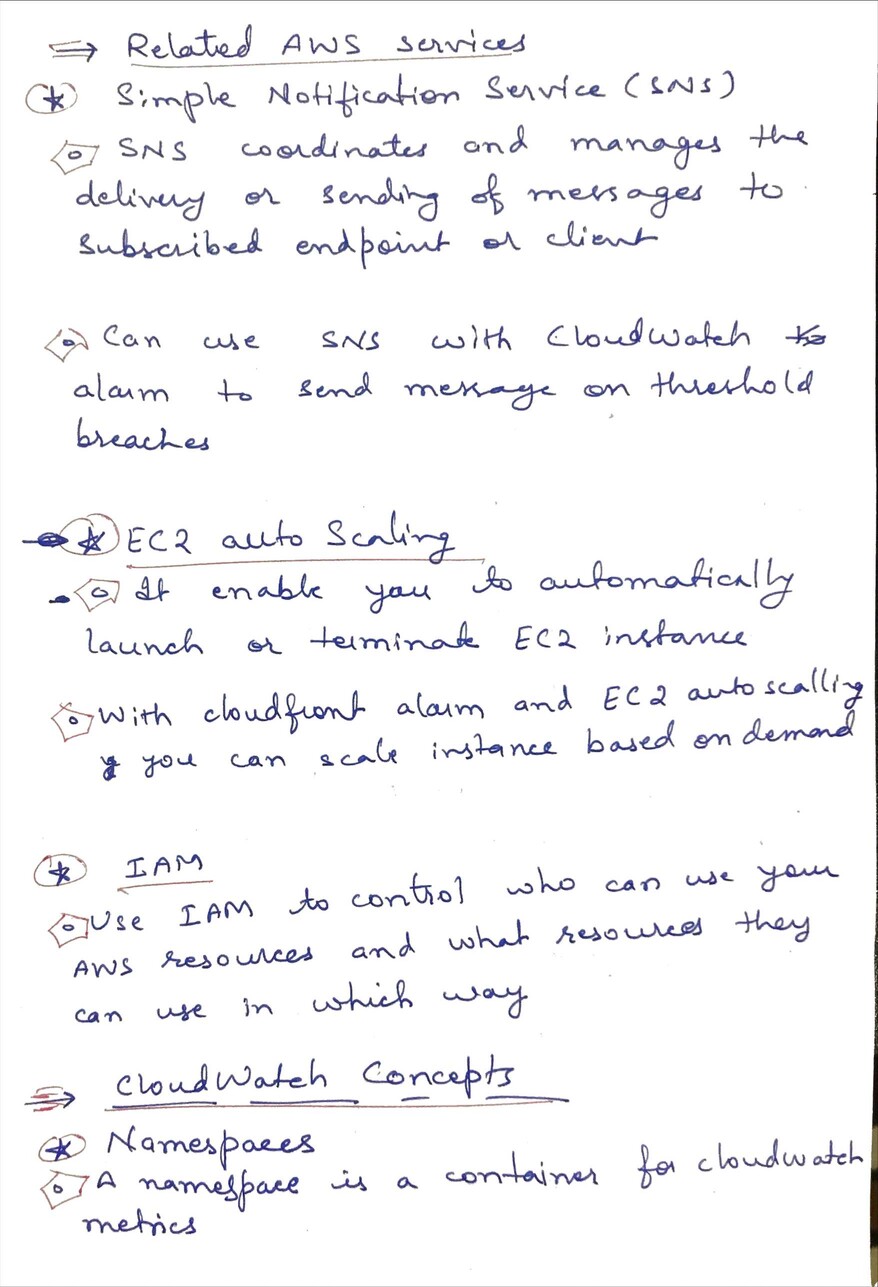 ⇒ Related AWS services
Simple Notification Service (SNS)
SNS coordinates and manages the
delivery or sending of messages to
subscribed endpoint or client
Can use SNS with Cloudwatch
alarm to send message on threshold
breaches
EC2 auto Scaling
It enable you to automatically
launch or terminate EC2 instance
With cloudfront alarm and EC2 auto scalling
you can scale instance based on demand
IAM
Use IAM to control who can use your
AWS resources and what resources they
can use in which way
⇒ CloudWatch Concepts
Namespaces
A namespace is a container for cloudwatch
metrics